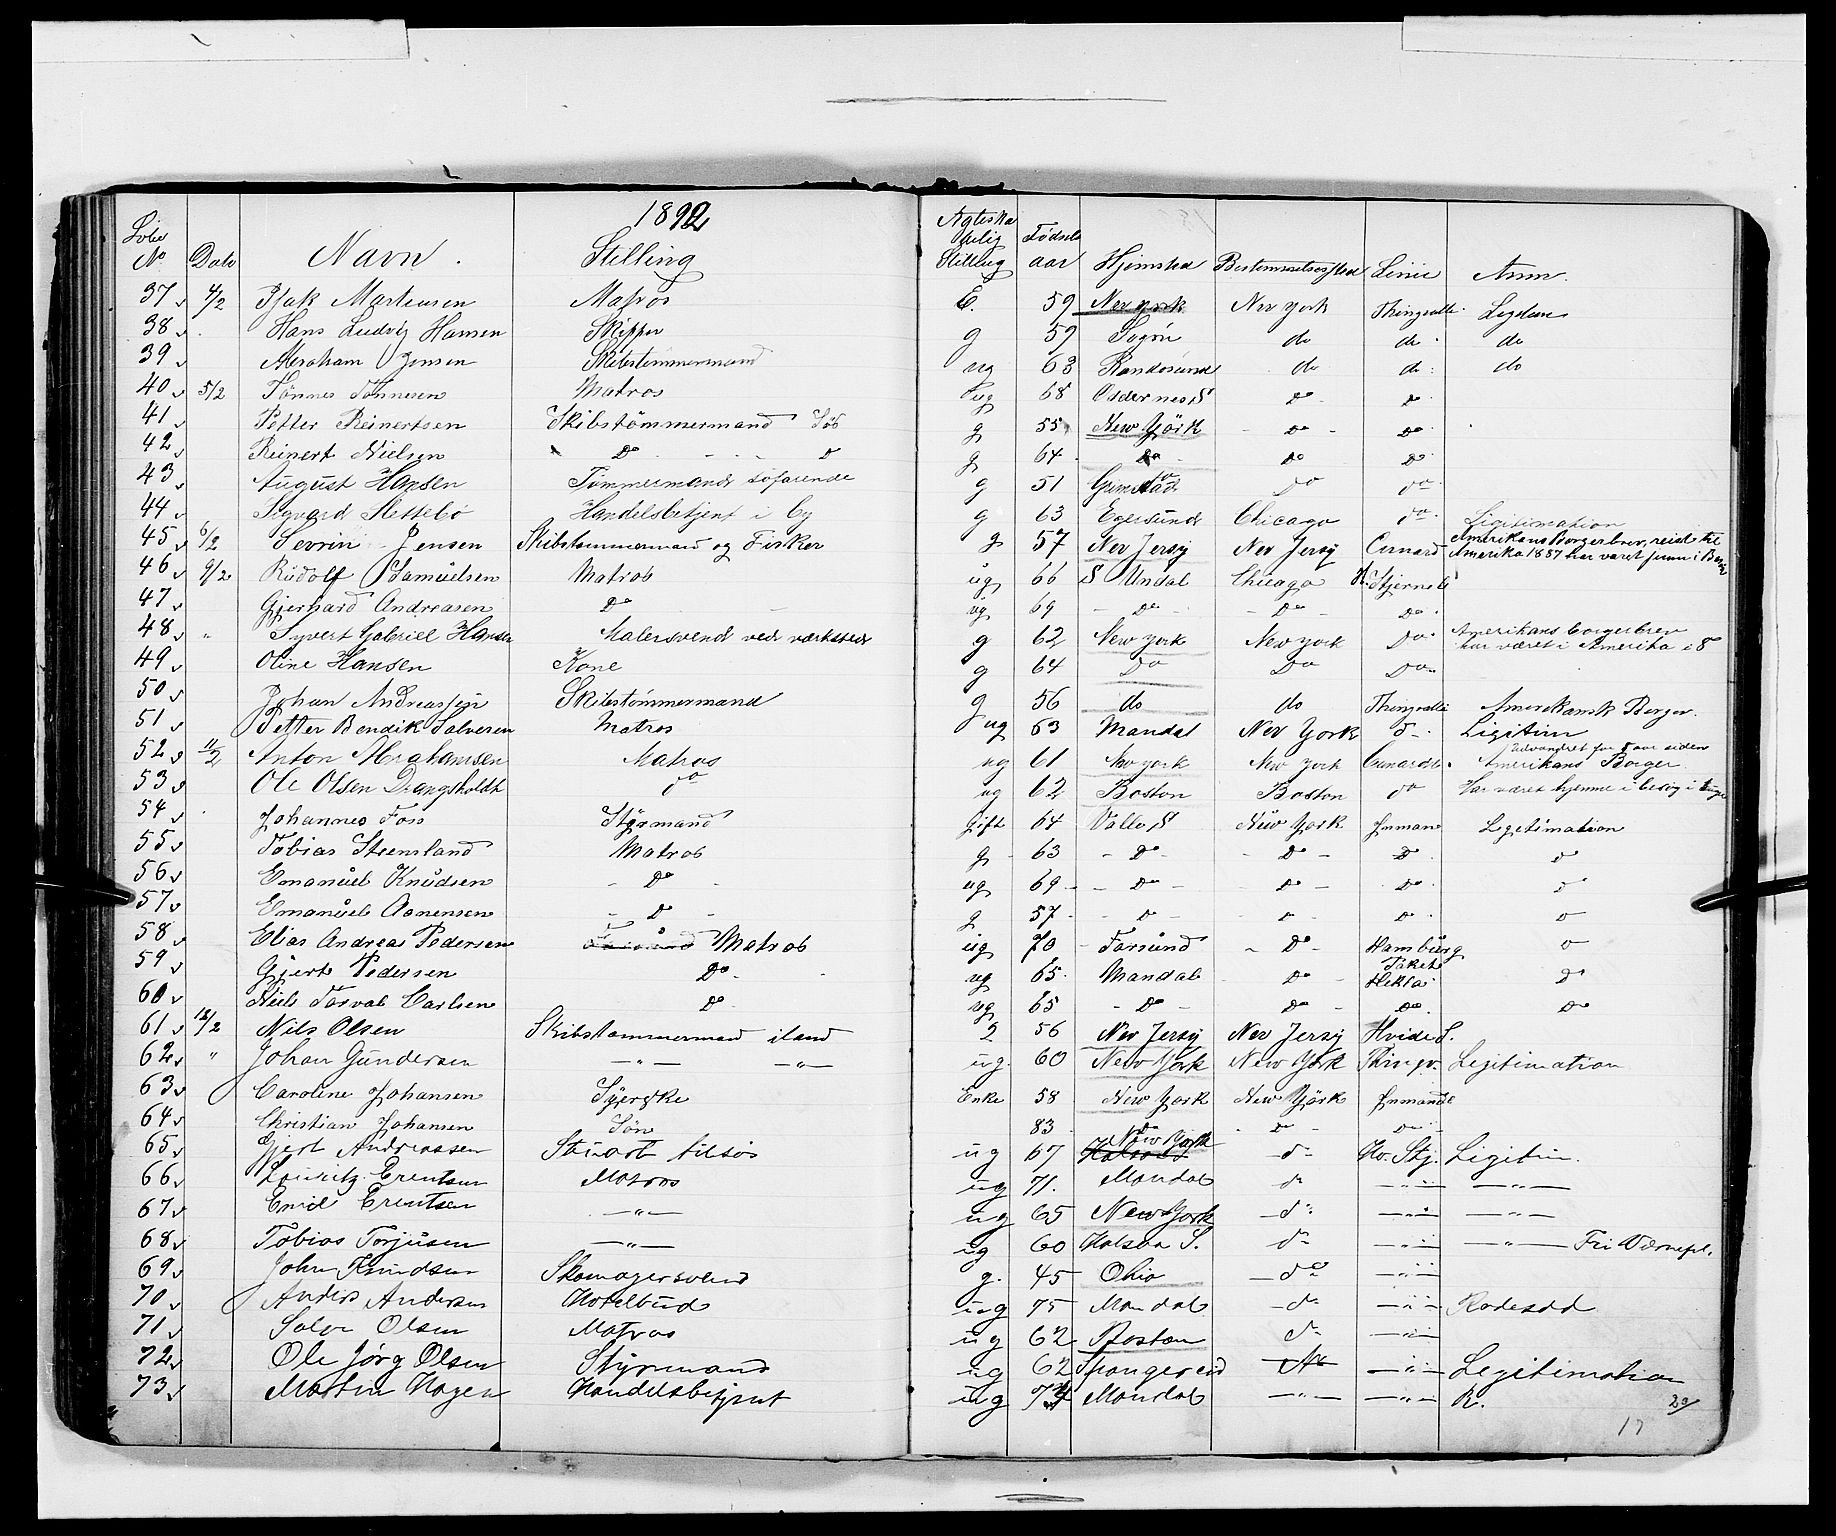 1892
Løbe No Dato Navn. Stilling Ægteska pelig Stilling Fødsels aar Hjemsted Bestemmelsessted Linie Anm.
37 4/2 Isak Martensen Matros E. 59 New York New York Thingvalle Legdem
38 Hans Ludvig Hansen Skipper g 59 Søgne do do do
39 Abraham Jensen Skibstømmermand ug 63 Randøsund do do do
40 5/2 Tønnes Tønnesen Matros ug 68 Do Do
41 Petter Reinertsen Skibstømmermand g 55 New York Do Do
42 Reinert Nielsen Do D g 64 Do Do Do
43 August Hansen Tømmermand søfarende g 51 Grimstad Do Do
44 Sigvard Hettebø Handelsbetjent i by g 63 Egersund Chicago Do Legitimation
45 6/2 Sevrin Jensen Skibstømmermand og Fisker g 57 Nev Jersy Nev Jersy Cunard Amerikans Borgerbrev, reist til Amerika 1887 har været hjem i
46 9/2 Rudolf Samuelsen Matros ug 66 S Undal Chicago H. Stjerne
47 Gjerhard Andreasen Do ug 69 Do Do Do
48 " Syvert Gabriel Hansen Malersvend ved værksted g 62 New York New York Do Amerikans borgerbrev har været i Amerika i 8
49 Oline Hansen Kone g 64 Do Do Do
50 Johan Andreassen Skibstømmermand g 56 do do Thingvalle Amerikansk Borger
51 Petter Bendik Salvesen Matros ug 63 Mandal Nev York D Legitim
52 11/2 Anton Abrahamsen Matros ug 61 New york New york Cunardl. Udvandret for 5 aar siden Amerikans Borger
53 Ole Olsen Drangsholdt Do ug 62 Boston Boston Do Har været hjemme i besøg i
54 Johannes Foss Styrmand gift 64 Valle S New York Inman Legitimation
55 Tobias Stensland Matros g 63 Do Do Do D
56 Emanuel Knudsen Do ug 69 Do Do Do D
57 Emanuel Aanensen D g 57 D D D D
58 Elias Andreas Pedersen Matros ug 70 Farsund D Hamburg D
59 Gjert Pedersen Do ug 65 Mandal Do Paket Hekla D
60 Niels Torval Carlsen Do ug 65 Do Do Do Do
61 12/2 Nils Olsen Skibstømmermand iland g 56 Nev Jersy Nev Jersy Hvide S.
62 " Johan Gundersen —"— —"— ug. 60 New York New York Thingv. Legitimation
63 Caroline Johansen Syerske Enke 58 New York New York Inmand
64 Christian Johansen Søn 83 Do Do Do
65 Gjert Andreassen Stuart tilsøs ug 67 New York Do Hv. Stj. Legitim.
66 Lauritz Erentsen Matros ug 71. Mandal Do —"— —"—
67 Emil Erentsen —"— ug 65 New York Do —"— —"—
68 Tobias Torjusen —"— ug 60 Halsaa S. Do —"— —"— Fri Værnepl.
69 John Knudsen Skomagersvend g. 45 Ohio Do —"—
70 Anders Andersen Hotelbud ug 75 Mandal Do —"— Rodesed
71 Salve Olsen Matros ug 62 Boston Do —"—
72 Ole Jørg Olsen Styrmand ug 62 Spangereid —"— Legitimation
73 Martin Hagen Handelsbetjent ug 74 Mandal —"— —"— R.
20/
17